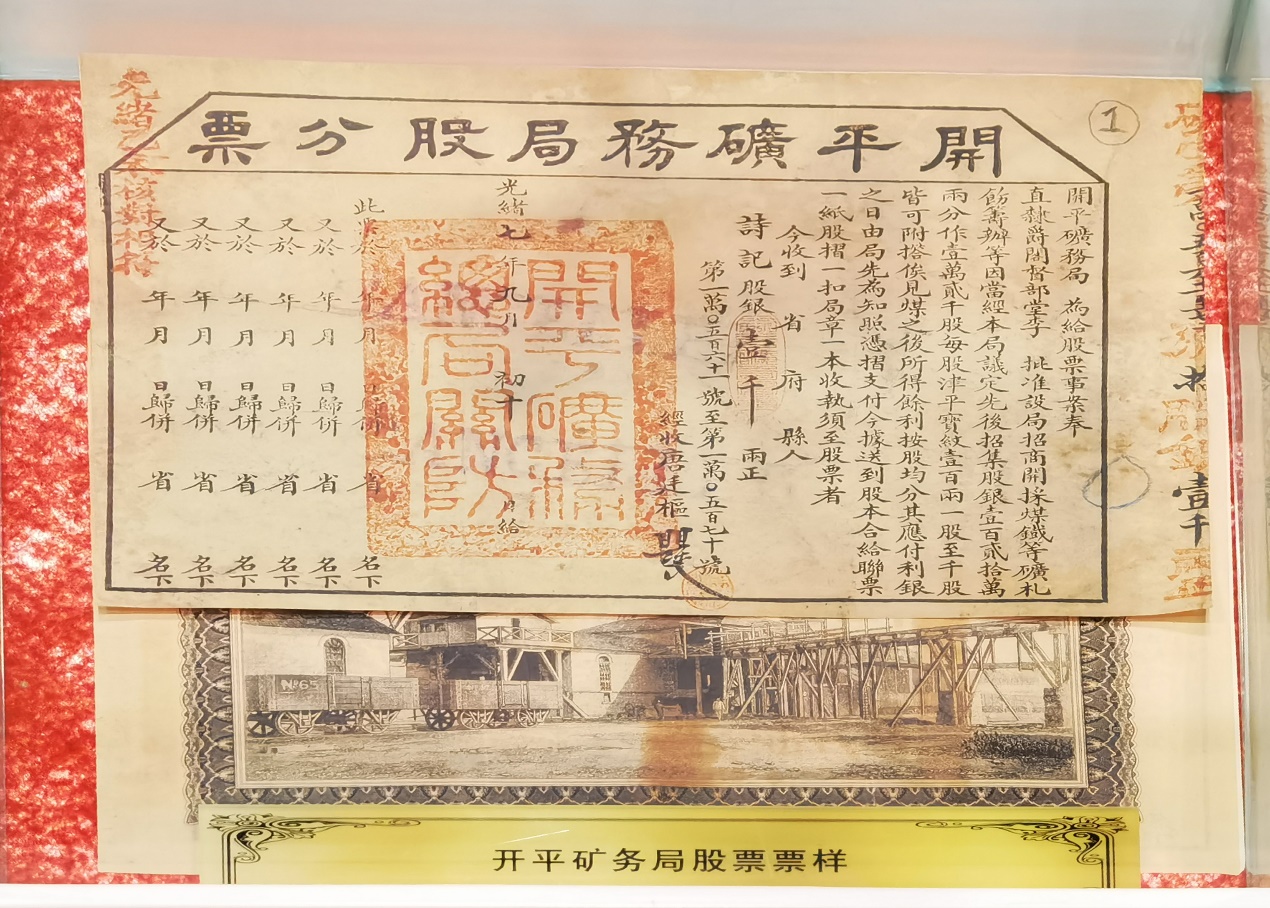 開平礦務局股分票
1
開平礦務局 為給股票事案奉
直隸爵閣督部堂李 批准設局招商開採煤鐵等礦札
飭籌辦等因當經本局議定先後招集股銀壹百貳拾萬
兩分作壹萬貳千股每股津平寶紋壹百兩一股至千股
皆可附搭俟見煤之後所得餘利按股均分其應付利銀
之日由局先為知照憑摺支付今據送到股本合給聯票
一紙股摺一扣局章一本收執須至股票者
今收到 省 府 縣人
詩記股銀壹千兩正
第一萬〇五百六十一號至第一萬〇五百七十號
經收唐廷樞
開平礦務總局關防
光緒七年九月初十日給
此票於 年 月 日歸併 省 名下
又於 年 月 日歸併 省 名下
又於 年 月 日歸併 省 名下
又於 年 月 日歸併 省 名下
又於 年 月 日歸併 省 名下
又於 年 月 日歸併 省 名下
壹千
No65
开平矿务局股票票样